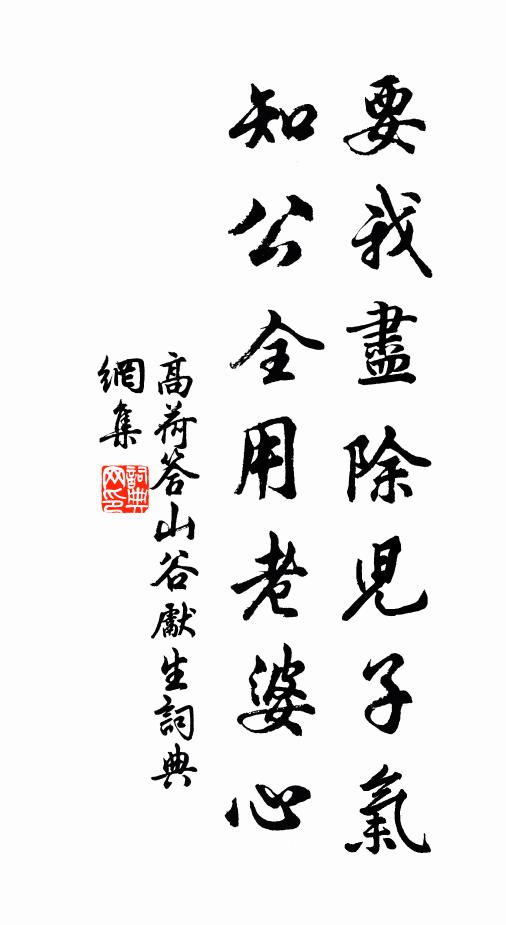 要我盡除兒子氣
知公全用老婆心
高荷答山谷獻生詞典
網集
詞典
网印